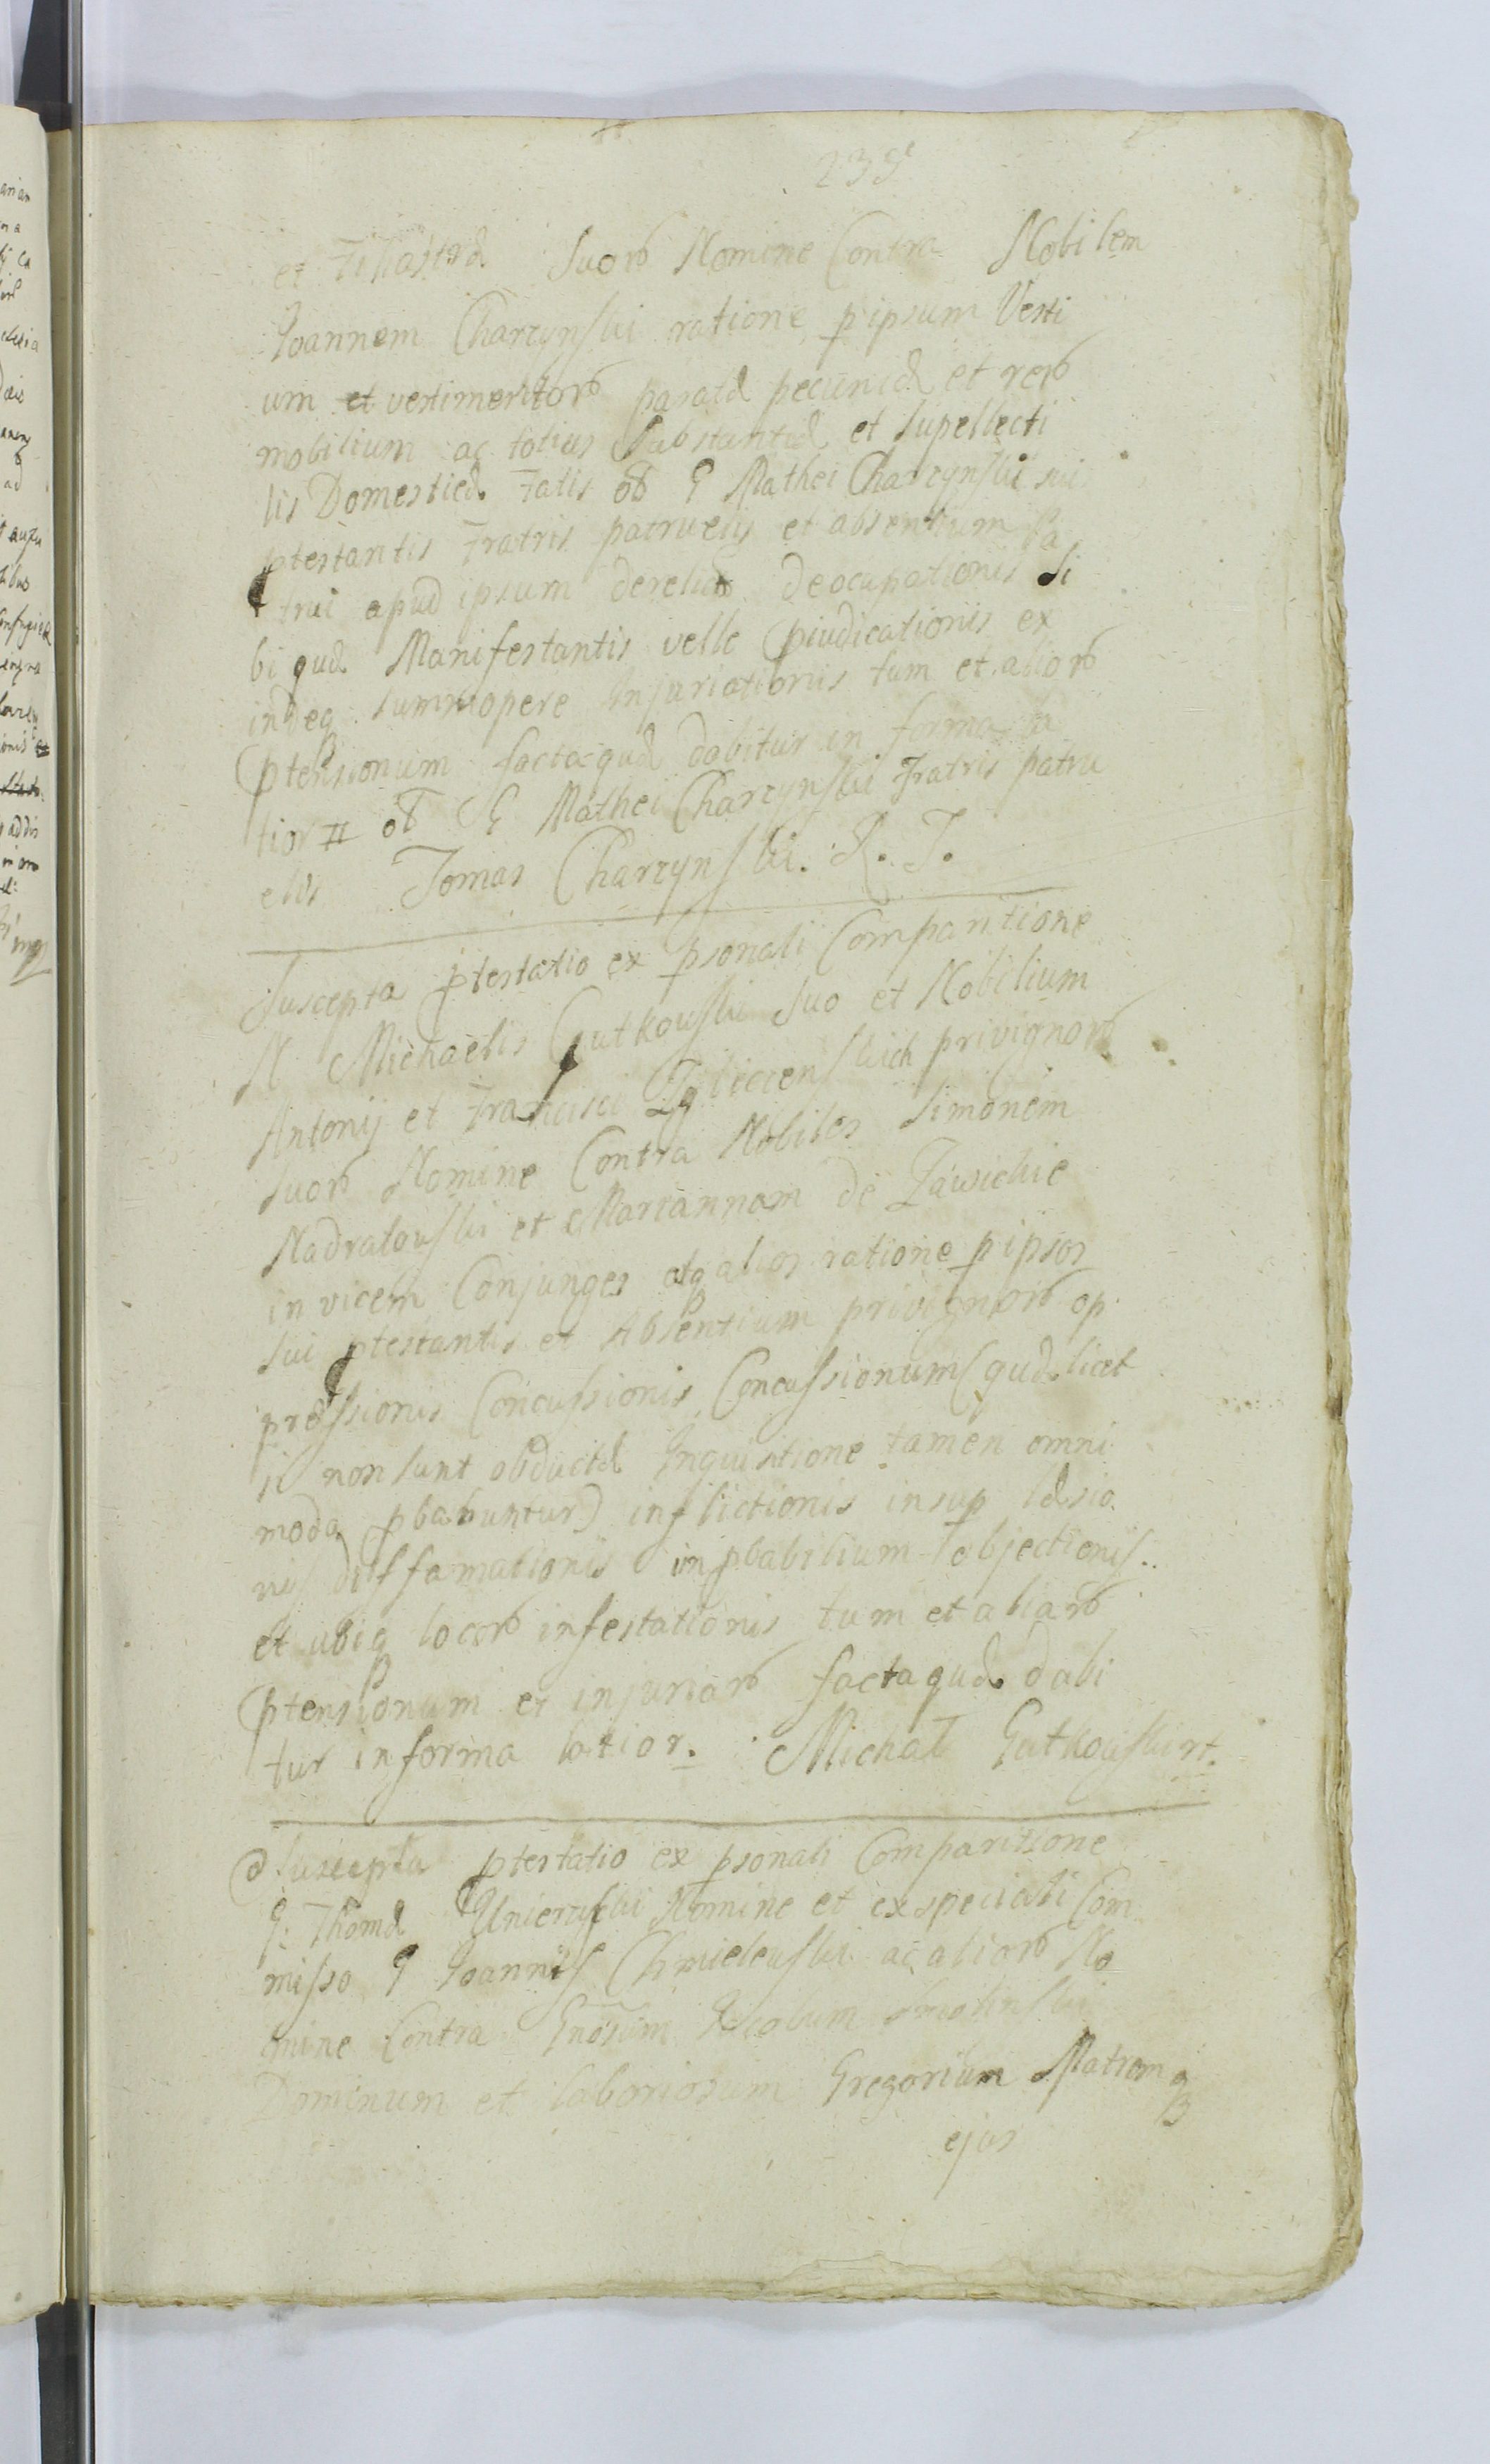 239
et Suorō Nomine Contra Nobilem
Joannem Charzynski ratione p ipsum Vesti
um et vestimentorō paratæ pecuniæ et rerō
mobilium ac totius Substantiæ et Supellecti
lis Domesticæ Fatis ol G Mathei Charzynski sui
ptestantis Fratris patruelis et absentium Pa
trui apud ipsum derelict deocupationis Si
bi quæ Manifestantis velle pjudicationis ex
indeq summopere Injuriationis tum et aliorō
ptensionum factaquæ dabitur in forma la
tior ol G Mathei Charzynski Fratris patru
elis Tomas Charzynski. R. T.
Suscepta ptestatio ex psonali Comparitione
N Michaelis Gutkowski Suo et Nobilium
Antonij et Francisci privignorō
Suorō Nomine Contra Nobiles Simonem
Nadratowski et Mariannam de Zawichie
in vicem Conjuges atq alios ratione p ipsos
Sui ptestantis et Absentium privignorō op
pressionis Concussionis Concussionum (quæ licet
ji non sunt obductæ Inquisitione tamen omni
moda pbabuntur) inflictionis insup læsio
nis diffamationis inpbabilium objectionis..
et ubiq locorō infestationis tum et aliarō
ptensionum et injuriarō factaquæ dabi
tur in forma latior. Michał Gutkowski rt.
Suscepta ptestatio ex psonali Comparitione
G: Thomæ Unierzyski Nomine et ex speciali Com
misso G Joannis Chmielewski ac aliorō No
mine Contra Gnosum Jacobum Smolinski
Dominum et laboriosum Gregorium
ejus